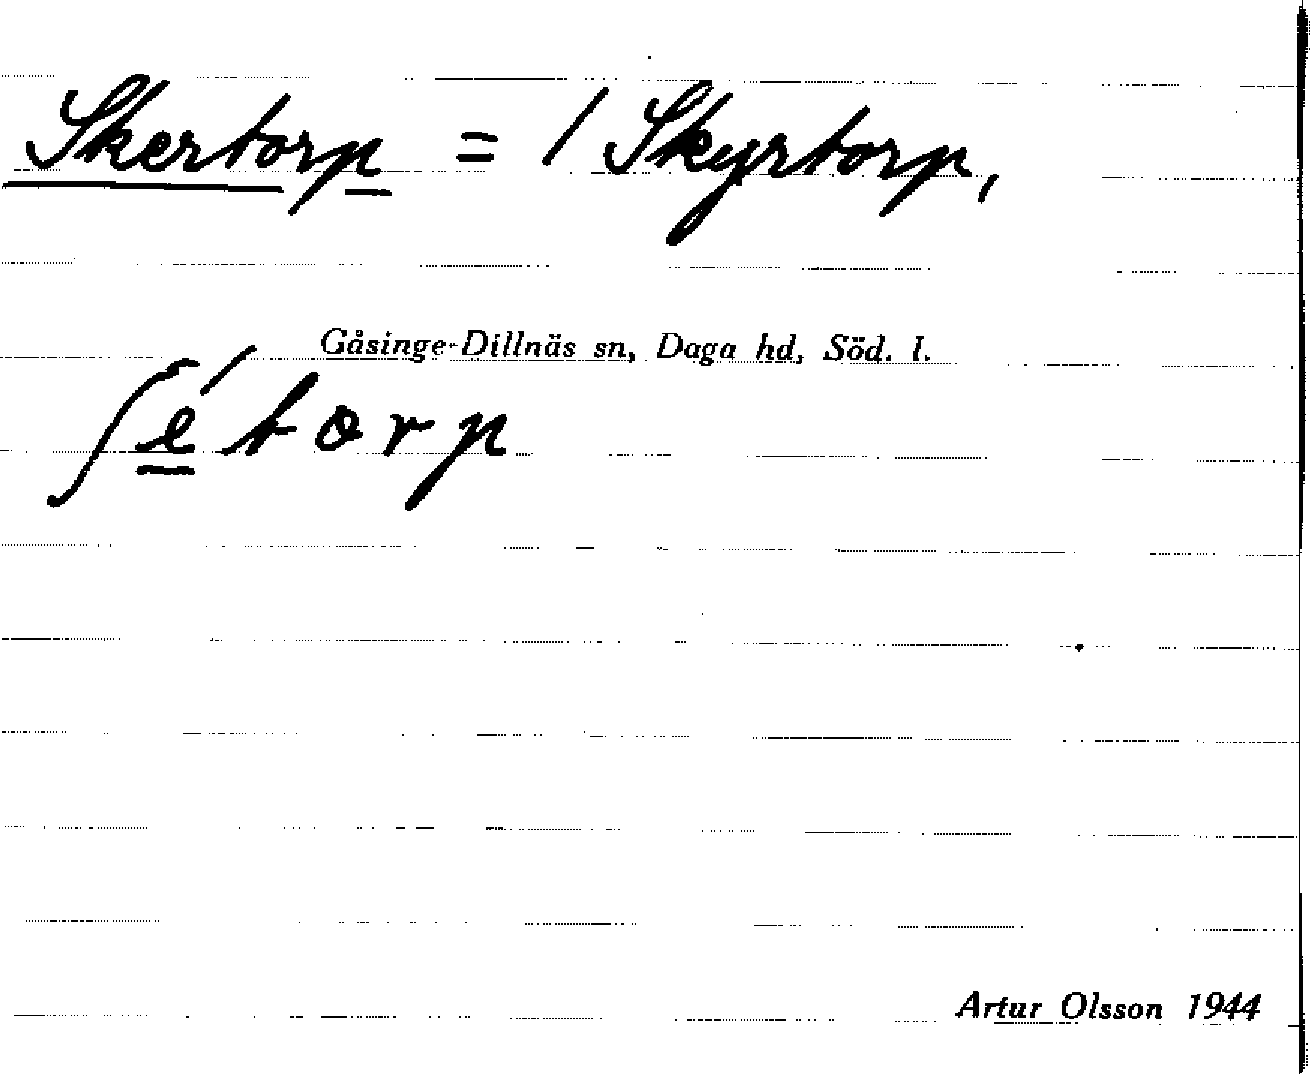 Skertorp = / Skyrtorp,
Gåsinge-Dillnäs sn, Daga hd, Söd. l.
ʃe´torp
Artur Olsson 1944